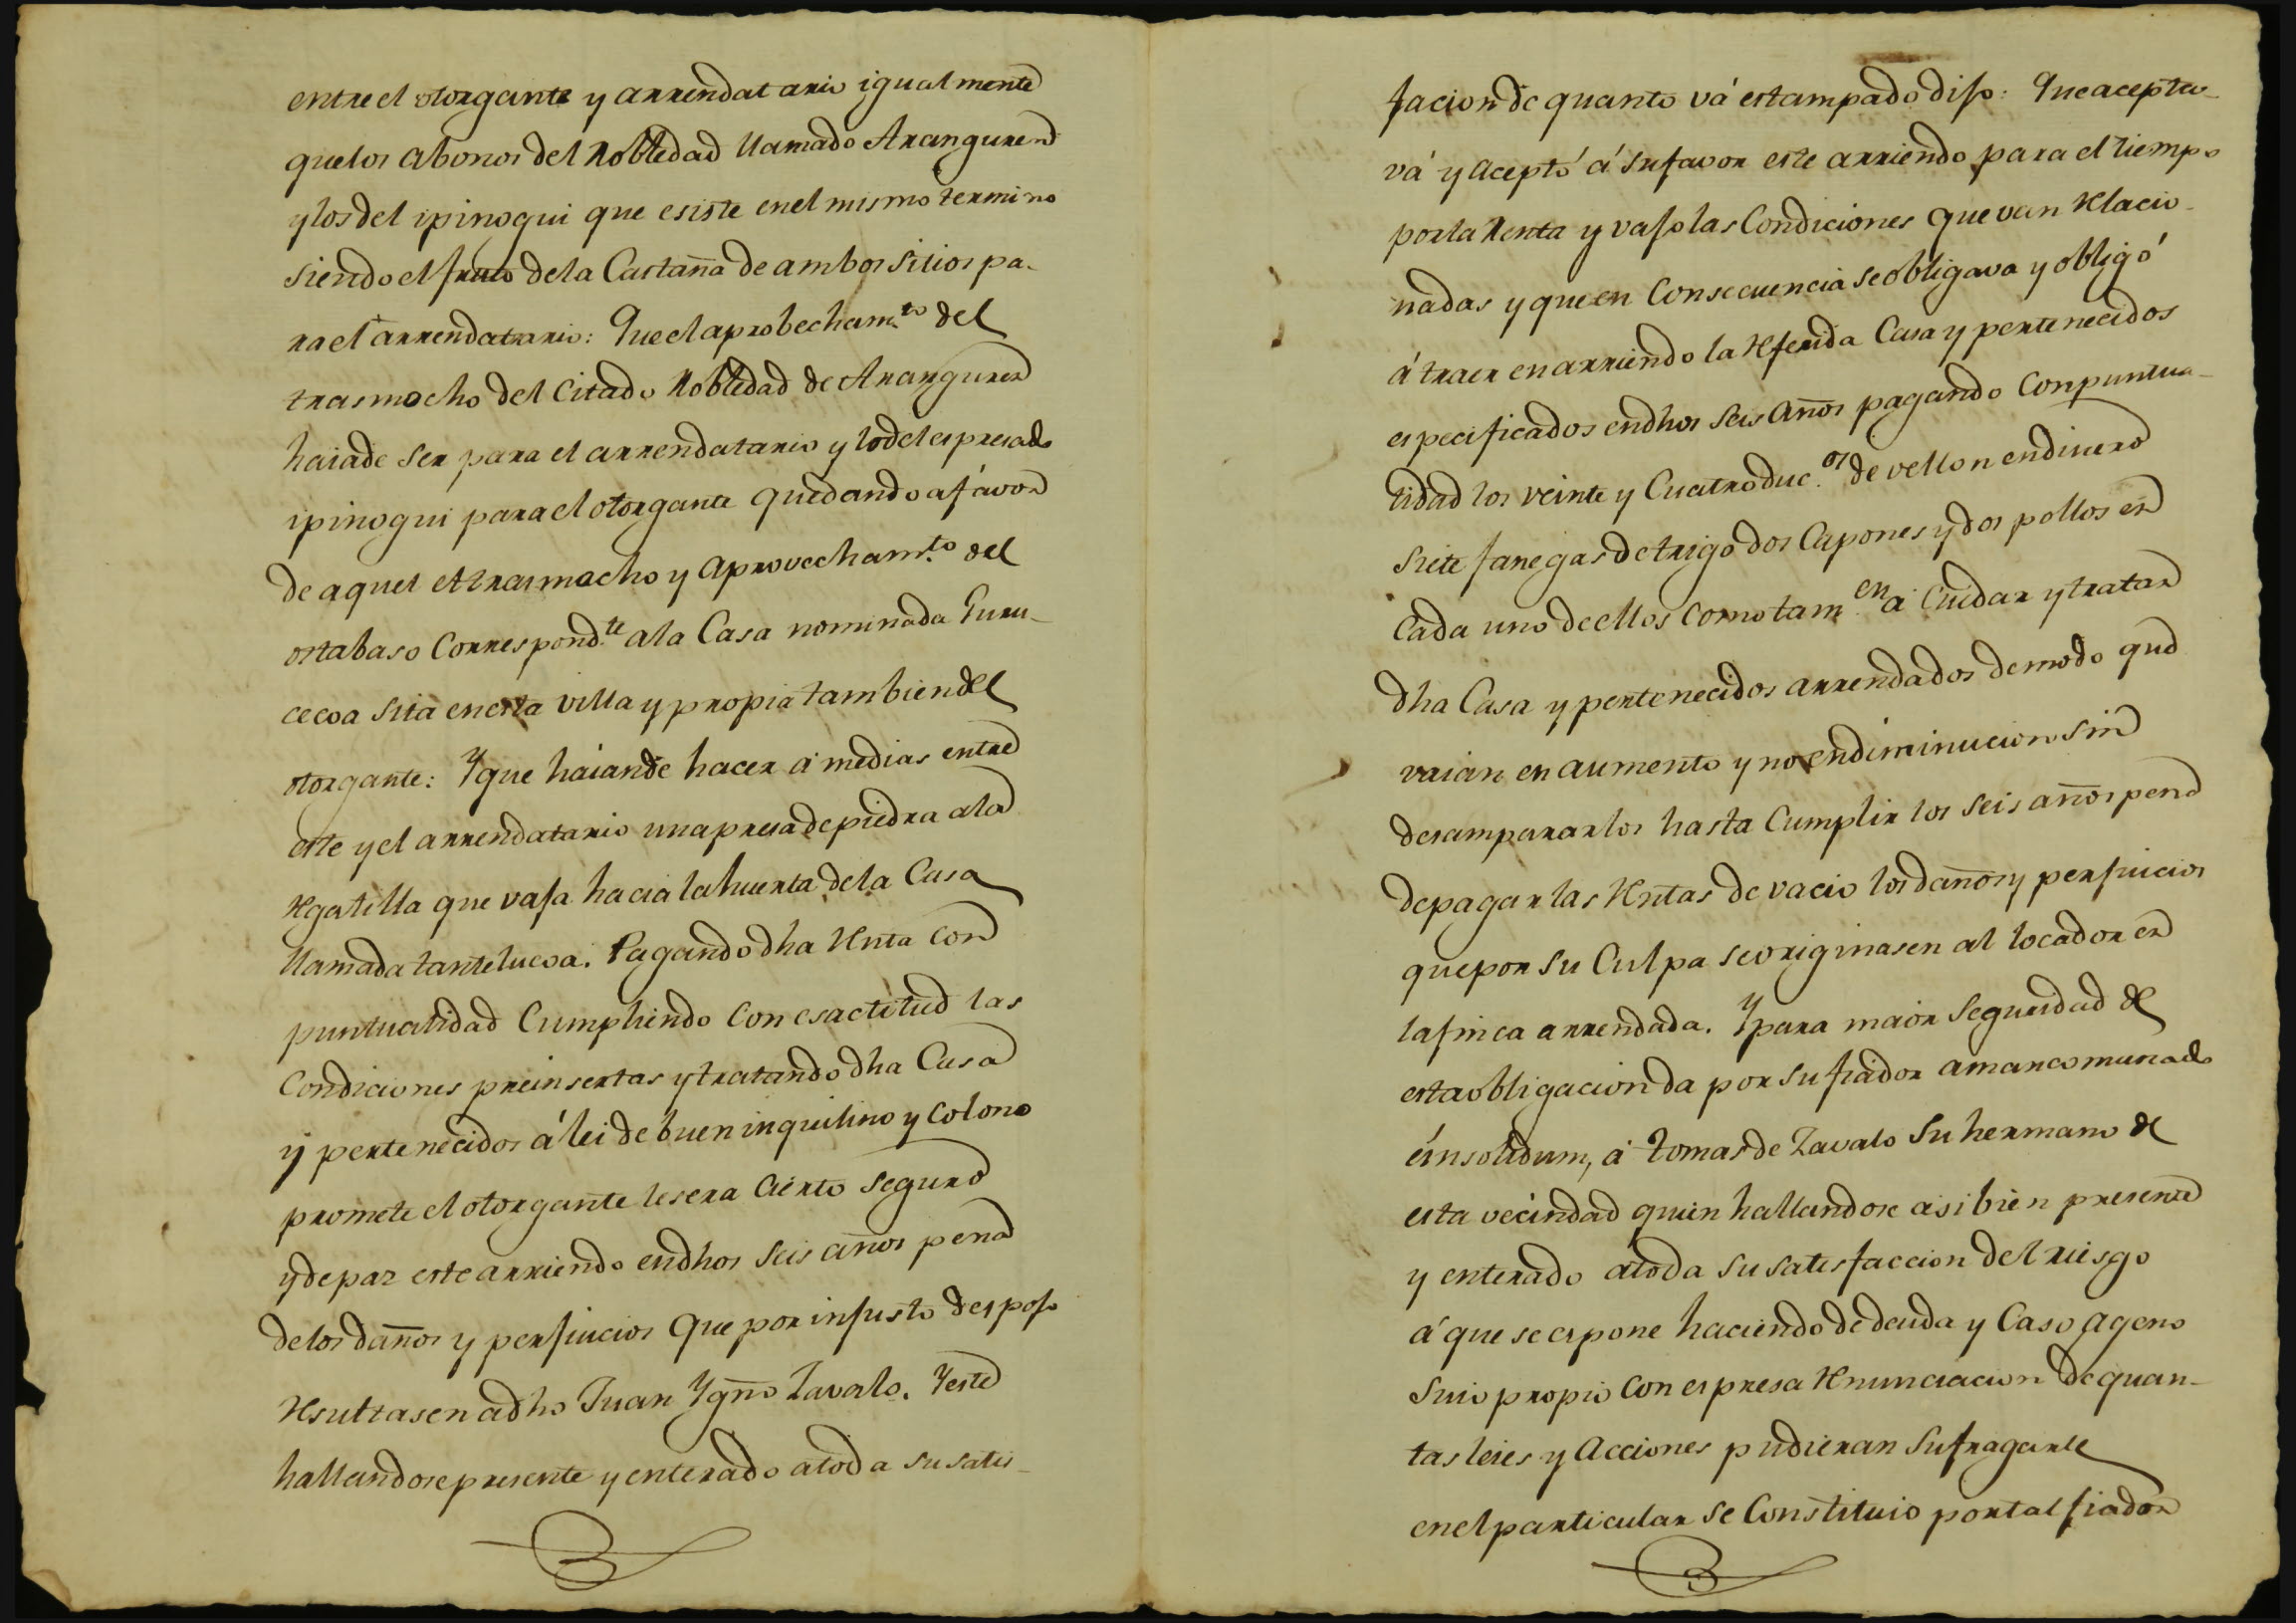 entre el otorgante y arrendatario igualmente
que los abonos del Robledad llamado Aranguren
y los del ipinogui que esiste en el mismo termino
siendo el fruto de la Castaña de ambos sitios pa-
ra el arrendatario: Que el aprobecham.to del
trasmocho del citado Robledad de Aranguren
haia de ser para el arrendatario y lo del espresado
ipinogui para el otorgante quedando a favor
de aquel el trasmocho y aprovecham.to del
ostabaso correspond.te a la Casa nominada Guru-
cecoa sita en esta villa y propia tambien del
otorgante: Y que haian de hacer á medias entre
este y el arrendatario una presa de piedra a la
regatilla que vaja hacia la huerta de la Casa
llamada tantelucoa. Pagando dha renta con
puntualidad cumpliendo con esactitud las
condiciones preinsertas y tratando dha Casa
y pertenecidos á lei de buen inquilino y colono
promete el otorgante le sera cierto seguro
y de paz este arriendo en dhos seis años pena
de los daños y perjuicios que por injusto despojo
resultasen a dho Juan Ygnº Zavalo. Y este
hallandose presente y enterado a toda su satis-
facion de quanto vá estampado dijo: Que acepta-
vá y aceptó á su favor este arriendo para el tiempo
por la renta y vajo las Condiciones que van relacio-
nadas y que en Consecuencia se obligava y obligó
á traer en arriendo la referida Casa y pertenecidos
especificados en dhos seis años pagando con puntua-
lidad los veinte y cuatro duc.os de vellon en dinero
siete fanegas de trigo dos Capones y dos pollos en
cada uno de ellos como tam.en á cuidar y tratar
dha Casa y pertenecidos arrendados de modo que
vaian en aumento y no en diminucion sin
desampararlos hasta cumplir los seis años pena
de pagar las rentas de vacio los daños y perjuicios
que por su culpa se originasen al locador en
la finca arrendada. Y para maior seguridad de
esta obligacion da por su fiador amancomunado
é insolidum, á Tomas de Zavalo su hermano de
esta vecindad quien hallandose asi bien presente
y enterado a toda su satisfaccion del riesgo
á que se espone haciendo de deuda y caso ageno
suio propio con espresa renunciacion de quan-
tas leies y acciones pudieran sufragarle
en el particular se constituio por tal fiador